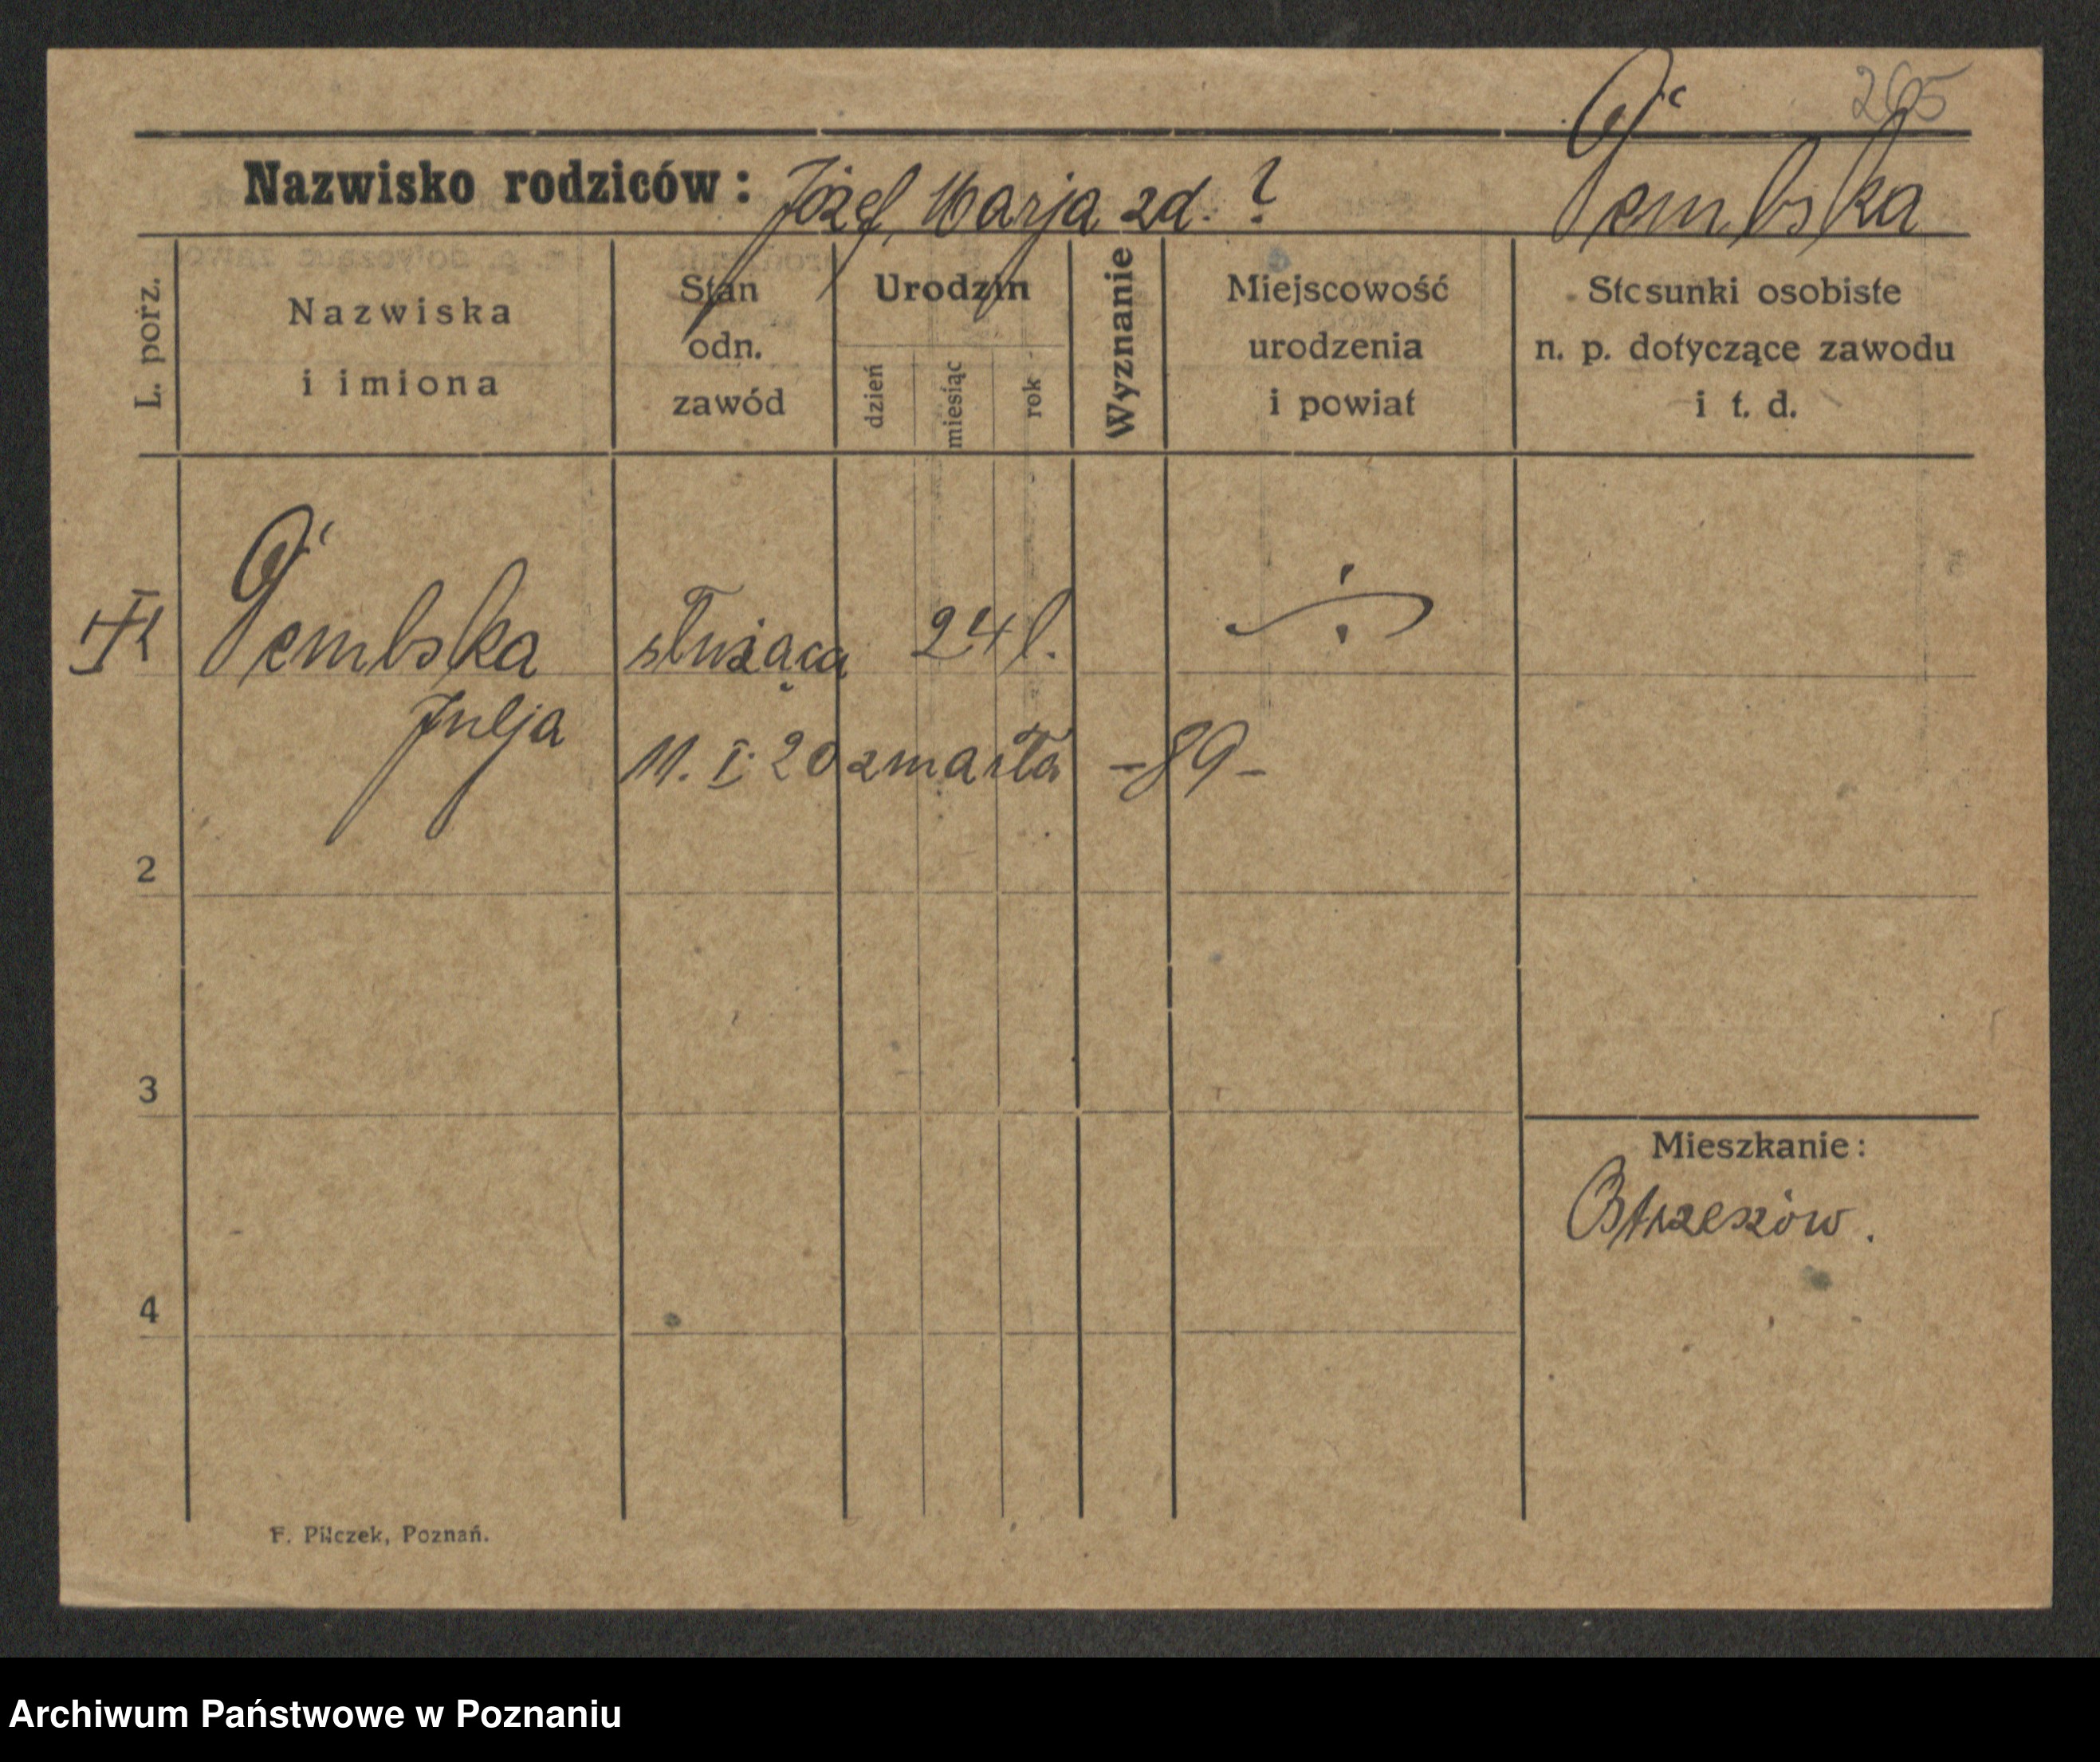 265
Pembska
Nazwisko rodziców: Józef, Marja zd. ?
L. porz.
Nazwiska
i imiona
Stan
odn.
zawód
Urodzin
dzień
miesiąc
rok
Wyznanie
Miejscowość
urodzenia
i powiat
Stosunki osobiste
n. p. dotyczące zawodu
i t. d.
Pembska służąca 24 l.
Julja
11. I. 20 zmarła -89-
2
3
4
Mieszkanie:
Ostrzeszów.
F. Pilczek, Poznań.
Archiwum Państwowe w Poznaniu